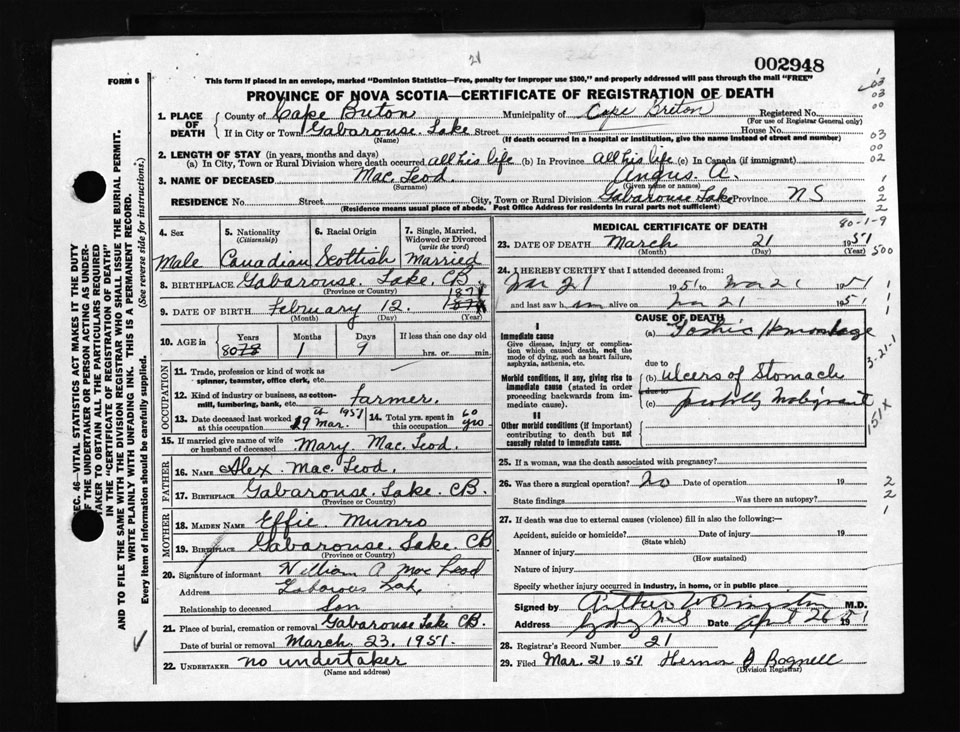 21
002948
FORM 6
This form if placed in an envelope, marked "Dominion Statistics—Free, penalty for improper use $300," and properly addressed will pass through the mail "FREE"
PROVINCE OF NOVA SCOTIA—CERTIFICATE OF REGISTRATION OF DEATH
1. PLACE OF DEATH County of Cape Breton Municipality of Cape Breton Registered No.
(For use of Registrar General only)
If in City or Town Gabarouse Lake Street House No.
(Name) (If death occurred in a hospital or institution, give the name instead of street and number)
2. LENGTH OF STAY (in years, months and days)
(a) In City, Town or Rural Division where death occurred all his life (b) In Province all his life (c) In Canada (if immigrant)
3. NAME OF DECEASED Mac Leod. Angus A.
(Surname) (Given name or names)
RESIDENCE No. Street City, Town or Rural Division Gabarouse Lake Province N S
(Residence means usual place of abode. Post Office Address for residents in rural parts not sufficient)
03
03
00
03
00
02
1
0
2
2
80-1-9
500
4. Sex 5. Nationality (Citizenship) 6. Racial Origin 7. Single, Married, Widowed or Divorced (write the word)
Male Canadian Scottish Married
8. BIRTHPLACE Gabarouse Lake C.B.
(Province or Country)
1871
9. DATE OF BIRTH February 12
(Month) (Day) (Year)
10. AGE in Years Months Days If less than one day old
80 78 1 9 hrs. or min.
OCCUPATION
11. Trade, profession or kind of work as spinner, teamster, office clerk, etc.
12. Kind of industry or business, as cotton-mill, lumbering, bank, etc. farmer.
13. Date deceased last worked at this occupation 19th Mar. 1951 14. Total yrs. spent in this occupation 60 yrs
15. If married give name of wife or husband of deceased Mary Mac Leod.
FATHER
16. NAME Alex Mac Leod.
17. BIRTHPLACE Gabarouse Lake CB.
(Province or Country)
MOTHER
18. MAIDEN NAME Effie Munro
19. BIRTHPLACE Gabarouse Lake. CB
(Province or Country)
20. Signature of informant William A Mac Leod
Address Gabarous Lake
Relationship to deceased Son
21. Place of burial, cremation or removal Gabarouse Lake CB.
Date of burial or removal March 23, 1951.
22. UNDERTAKER no undertaker
(Name and address)
MEDICAL CERTIFICATE OF DEATH
23. DATE OF DEATH March 21 1951
(Month) (Day) (Year)
24. I HEREBY CERTIFY that I attended deceased from:
Mar 21 1951 to Mar 21 1951
and last saw him alive on Mar 21 1951
CAUSE OF DEATH
I
Immediate cause (a) Gastric Hemorrhage
Give disease, injury or complication which caused death, not the mode of dying, such as heart failure, asphyxia, asthenia, etc.
due to
Morbid conditions, if any, giving rise to immediate cause (stated in order proceeding backwards from immediate cause). (b) Ulcers of Stomach
due to
(c) probably Malignant
II
Other morbid conditions (if important) contributing to death but not causally related to immediate cause.
1
1
1
3-21-1
151X
25. If a woman, was the death associated with pregnancy?
26. Was there a surgical operation? no Date of operation 19
State findings Was there an autopsy?
2
2
1
27. If death was due to external causes (violence) fill in also the following:—
Accident, suicide or homicide? Date of injury 19
(State which)
Manner of injury
(How sustained)
Nature of injury
Specify whether injury occurred in industry, in home, or in public place
Signed by Arthur W M.D.
Address N S Date April 26 1951
28. Registrar's Record Number 21
29. Filed Mar. 21 1951 Bagnell
(Division Registrar)
SEC. 46—VITAL STATISTICS ACT MAKES IT THE DUTY
OF THE UNDERTAKER OR PERSON ACTING AS UNDER-
TAKER TO OBTAIN ALL THE PARTICULARS REQUIRED
IN THE "CERTIFICATE OF REGISTRATION OF DEATH"
AND TO FILE THE SAME WITH THE DIVISION REGISTRAR WHO SHALL ISSUE THE BURIAL PERMIT.
WRITE PLAINLY WITH UNFADING INK. THIS IS A PERMANENT RECORD.
Every item of information should be carefully supplied. (See reverse side for instructions.)